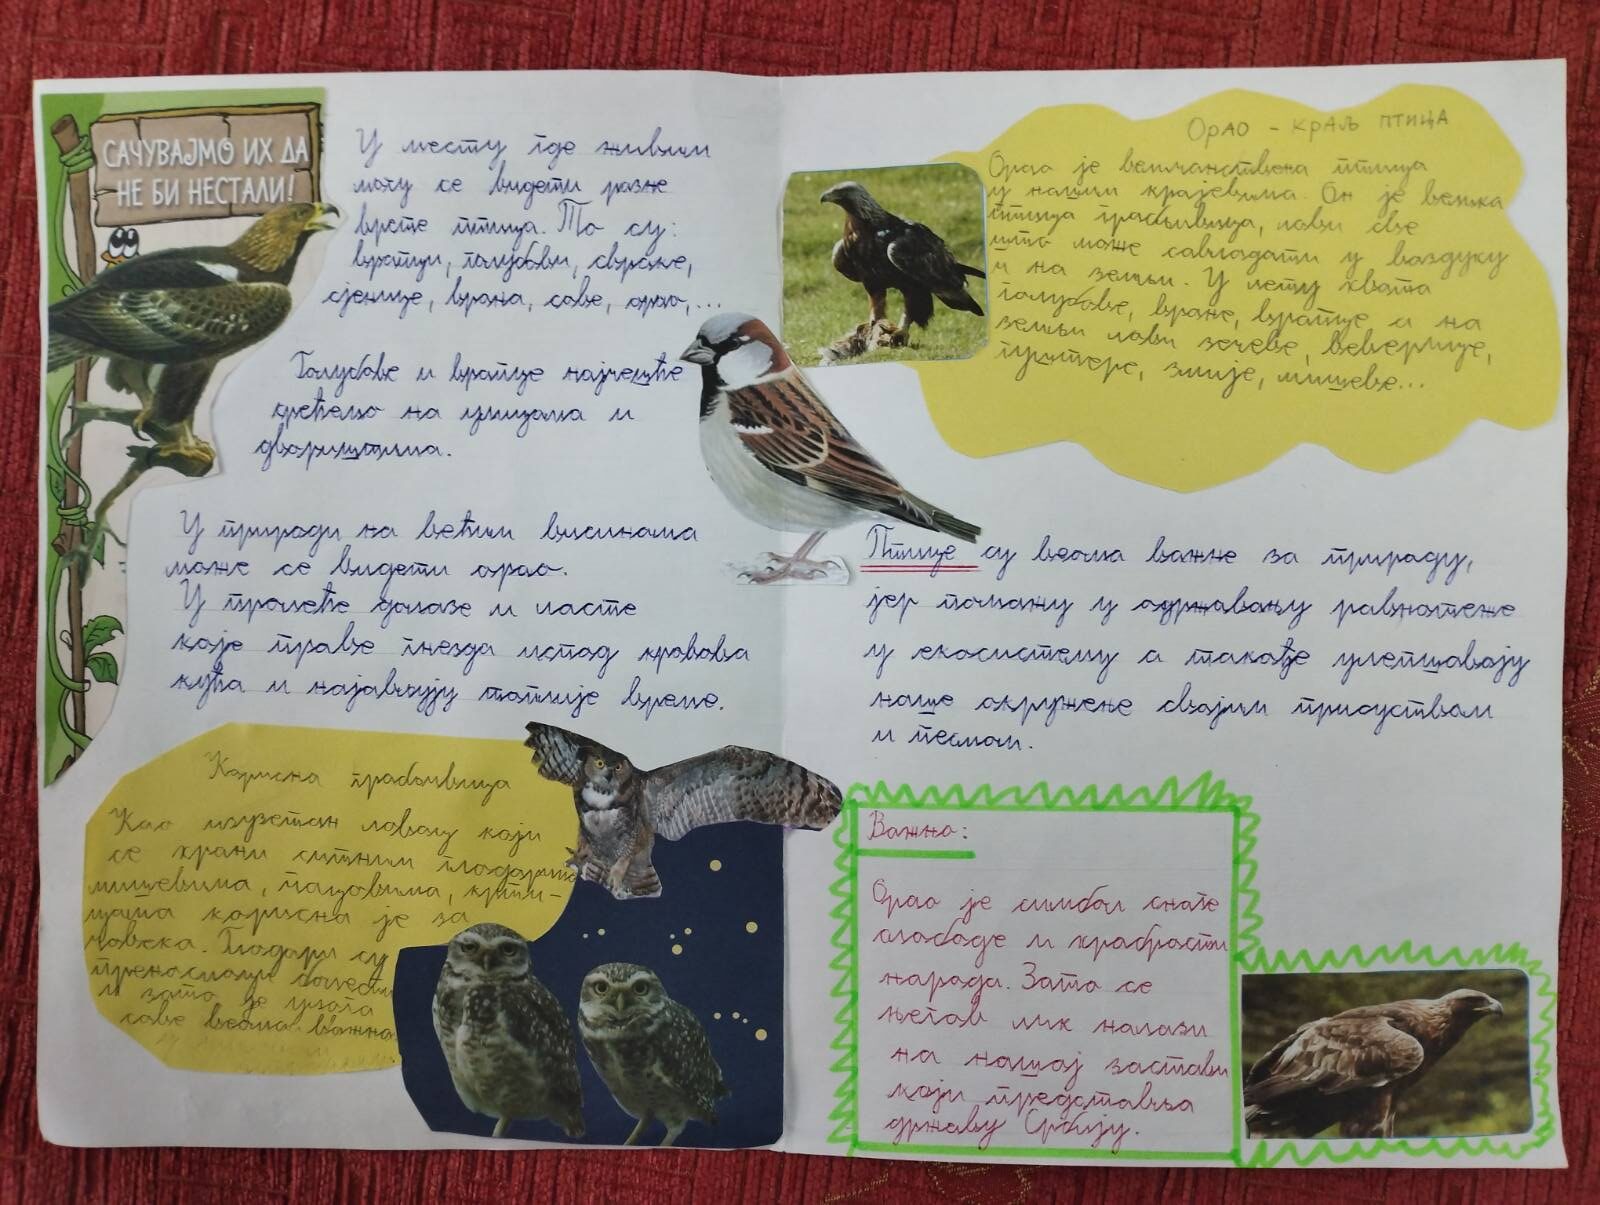 САЧУВАЈМО ИХ ДА
НЕ БИ НЕСТАЛИ!
У месту где живим
могу се видети разне
врсте птица. То су:
врапци, голубови, свраке,
сјенице, врана, сове, орао,...
Голубове и врапце најчешће
срећемо на улицама и
двориштима.
У природи на већим висинама
може се видети орао.
У пролеће долазе и ласте
које праве гнезда испод кровова
кућа и најављују топлије време.
Корисна грабљивица
Као изузетан ловац који
се храни ситним глодарима
мишевима, пацовима, крти-
цама корисна је за
човека. Глодари су
преносиоци болести
и зато је улога
сове веома важна
Орао - краљ птица
Орао је величанствена птица
у нашим крајевима. Он је велика
птица грабљивица, лови све
што може савладати у ваздуху
и на земљи. У лету хвата
голубове, вране, врапце а на
земљи лови зечеве, веверице,
гуштере, змије, мишеве...
Птице су веома важне за природу,
јер помажу у одржавању равнотеже
у екосистему а такође улепшавају
наше окружење својим присуством
и песмом.
Важно:
Орао је симбол снаге
слободе и храбрости
народа. Зато се
његов лик налази
на нашој застави
који представља
државу Србију.